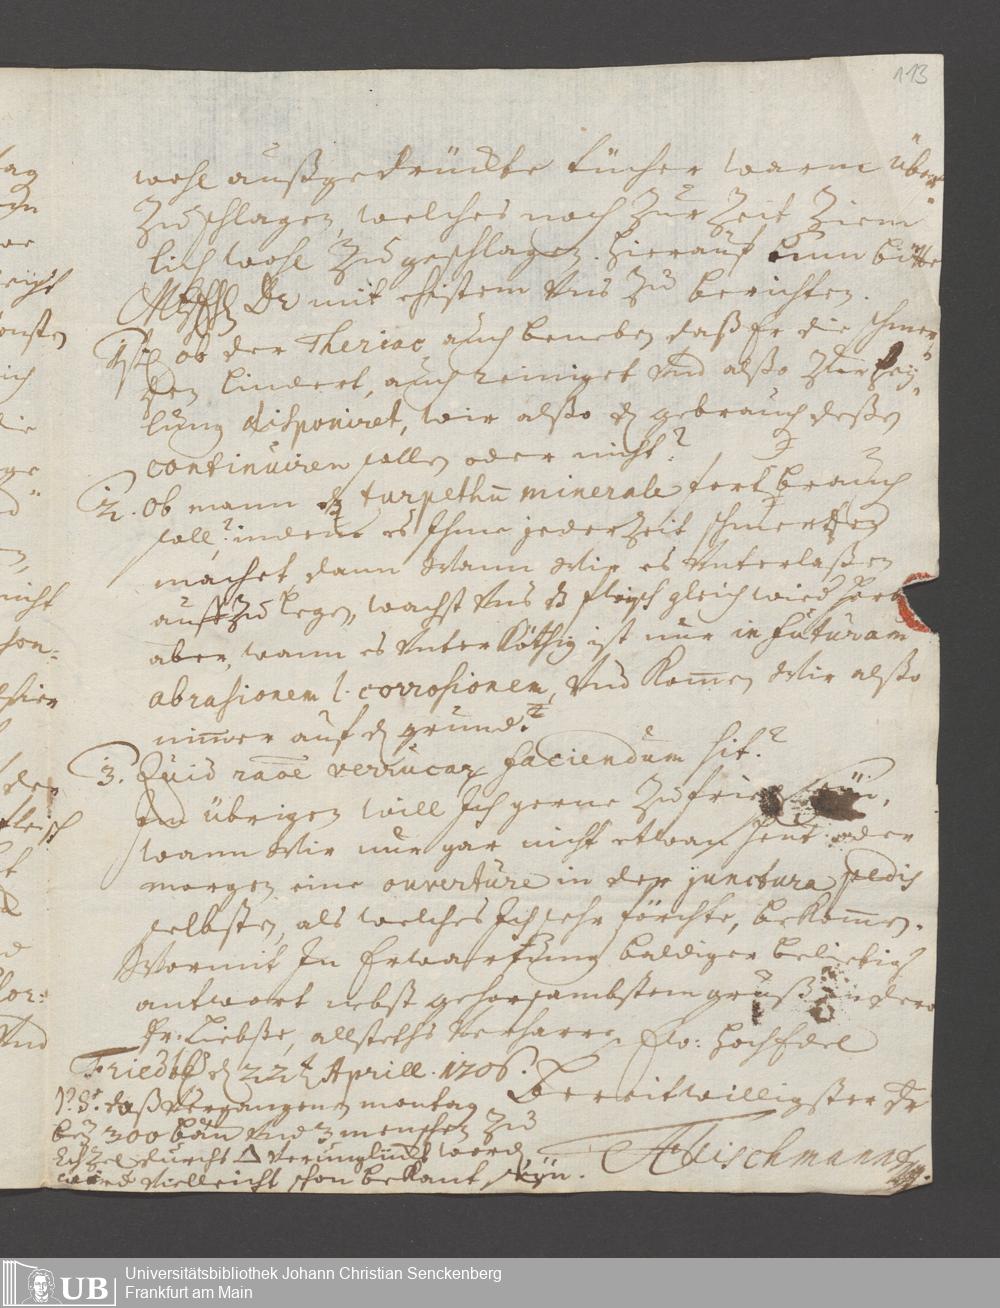 113
wohl außgedrückte tücher warm über
Zu schlagen, welches noch zur Zeit Ziem
lich wohl Zugeschlagen. Hierauf nun bitte
Dr mit ehistem Uns Zu berichten.
1. ob der Theriac, auch beneben daß Er die schmer
zen lindert, auch reiniget Und alßo Zur Hey
lung disponiret, wir alßo gebrauch deßen
continuiren sollen oder nicht?
2. Ob mann turpethū minerale fort brauch
soll? indeme es Ihme jederZeit schmertzen
machet, dann Wann Wir es Unterlaßen
auffZulegen, wachst Uns fleisch gleich wied
aber, wann es Unter ist nur in futuram
abrasionem l. corrosionem, Und Kom̄en Wir alßo
nim̄er auf grund.
3. Quid raōe verrucar faciendum sit?
Im übrigen will Ich gerne Zufrie
wann Wir nur gar nicht etwan heut oder
morgen eine ouverture in der junctura pedis
selbsten, als welches Ich sehr förchte, bekom̄en.
Wormit In Erwartung baldiger beliebig
antwort nebst gehorsambstem gruß an dero
Fr. Liebste, allstehts Verharre Ew: HochEdel
Friedb 22t Aprill. 1706.
Bereitwilligster Dr
P.S. daß Vergangenen montag
bey 300 bäu Und 3 menschen Zu
durchs △ Verunglückt word
Vielleicht schon bekant seyn.
Fleischmann
Universitätsbibliothek Johann Christian Senckenberg
Frankfurt am Main
UB